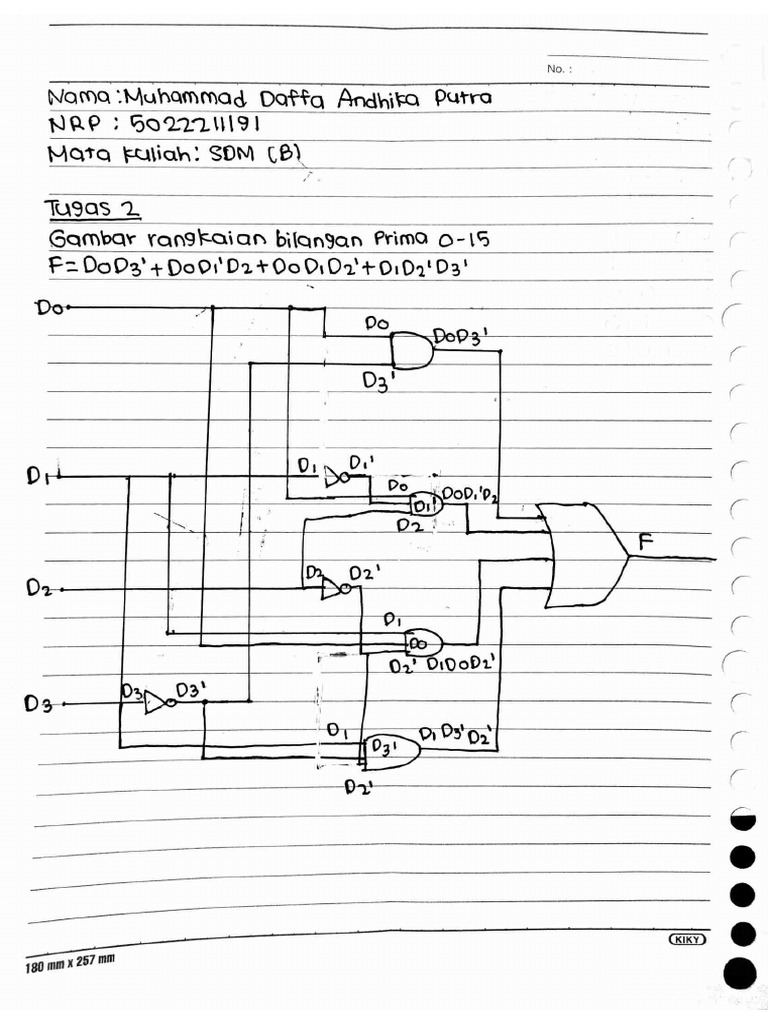 No. :
Nama : Muhammad Daffa Andhika Putra
NRP : 5022211191
Mata Kuliah : SDM (B)
Tugas 2
Gambar rangkaian bilangan Prima 0-15
F = D0D3' + D0D1'D2 + D0D1D2' + D1D2'D3'
D0
D0
D0D3'
D3'
D1
D1
D1'
D0
D0D1'D2
D1'
D2
F
D2
D2
D2'
D1
D0
D2'
D1D0D2'
D3
D3
D3'
D1
D1 D3' D2'
D3'
D2'
KIKY
180 mm x 257 mm